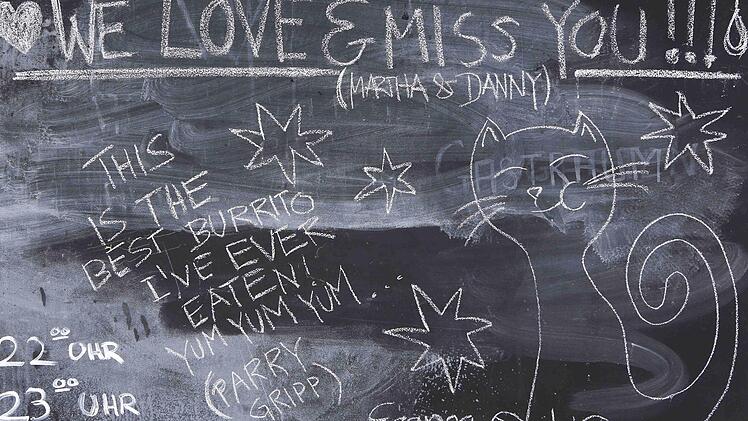 WE LOVE & MISS YOU !!!
(MARTHA & DANNY)
THIS
IS THE
BEST BURRITO
I'VE EVER
EATEN!
YUM YUM YUM...
(PARRY
GRIPP)
22⁰⁰ UHR
23⁰⁰ UHR